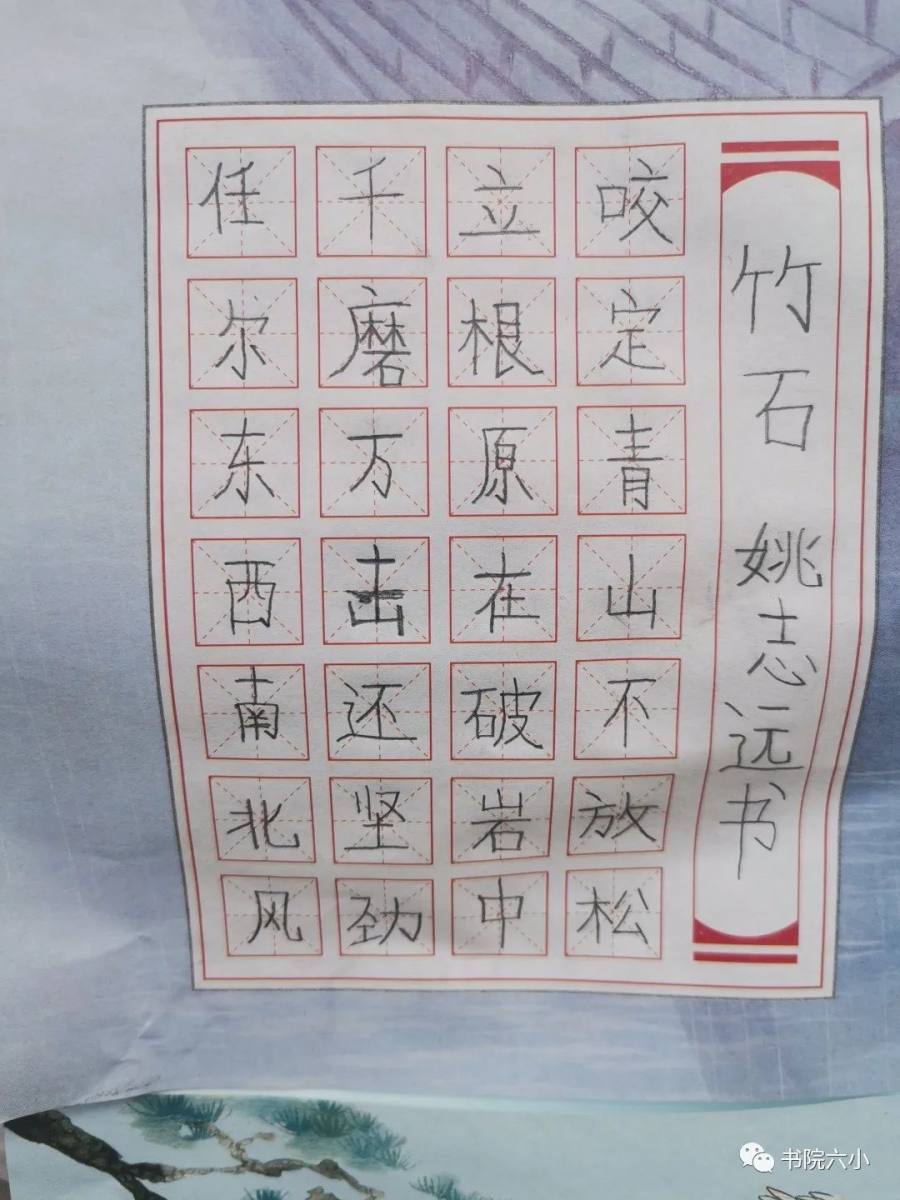 竹石 姚志远书
咬定青山不放松
立根原在破岩中
千磨万击还坚劲
任尔东西南北风
书院六小